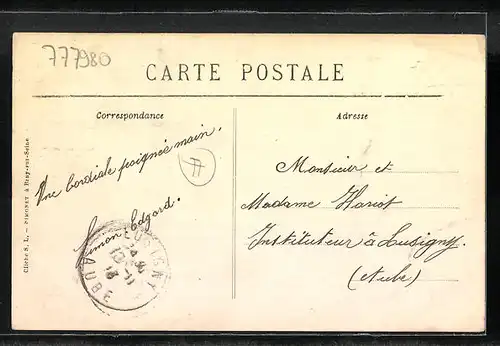 777980
CARTE POSTALE
Correspondance
Adresse
Une cordiale poignée main.
Simon Edgard.
Monsieur et
Madame Hariot
Instituteur à Lusigny.
(Aube)
LUSIGNY
AUBE
Cliché S. L. - SIMONET à Bray-sur-Seine